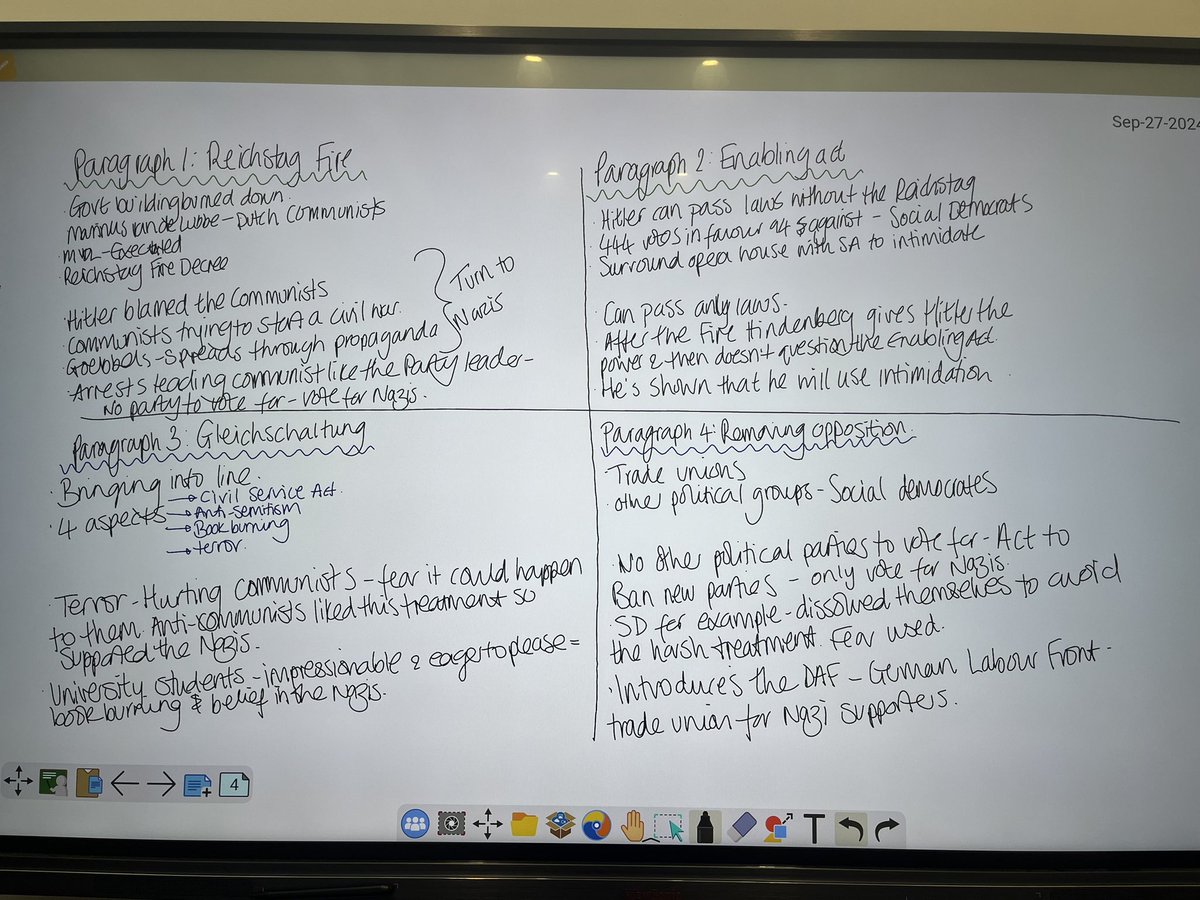 Sep-27-2024
Paragraph 1: Reichstag Fire
· Govt building burned down.
Marinus van de Lubbe - Dutch Communists
· MVL - Executed
Reichstag Fire Decree
· Hitler blamed the Communists
· Communists trying to start a civil war.
Goebbels - spreads through propaganda
} Turn to Nazis
· Arrests leading communist like the Party leader -
No party to vote for - vote for Nazis.
Paragraph 2: Enabling act
· Hitler can pass laws without the Reichstag
· 444 votes in favour 94 against - Social Democrats
· Surround opera house with SA to intimidate
· Can pass any laws.
· After the Fire Hindenberg gives Hitler the
power & then doesn't question the Enabling Act.
· He's shown that he will use intimidation
Paragraph 3: Gleichschaltung
· Bringing into line.
· 4 aspects → Civil Service Act.
→ Anti-semitism
→ Book burning
→ terror.
· Terror - Hurting communists - fear it could happen
to them. Anti-communists liked this treatment so
supported the Nazis.
· University students - impressionable & eager to please =
book burning & belief in the Nazis.
Paragraph 4: Removing opposition.
· Trade unions
· other political groups - Social democrates
· No other political parties to vote for - Act to
Ban new parties - only vote for Nazis.
· SD for example - dissolved themselves to avoid
the harsh treatment. Fear used.
· Introduces the DAF - German Labour Front -
trade union for Nazi supporters.
4
T